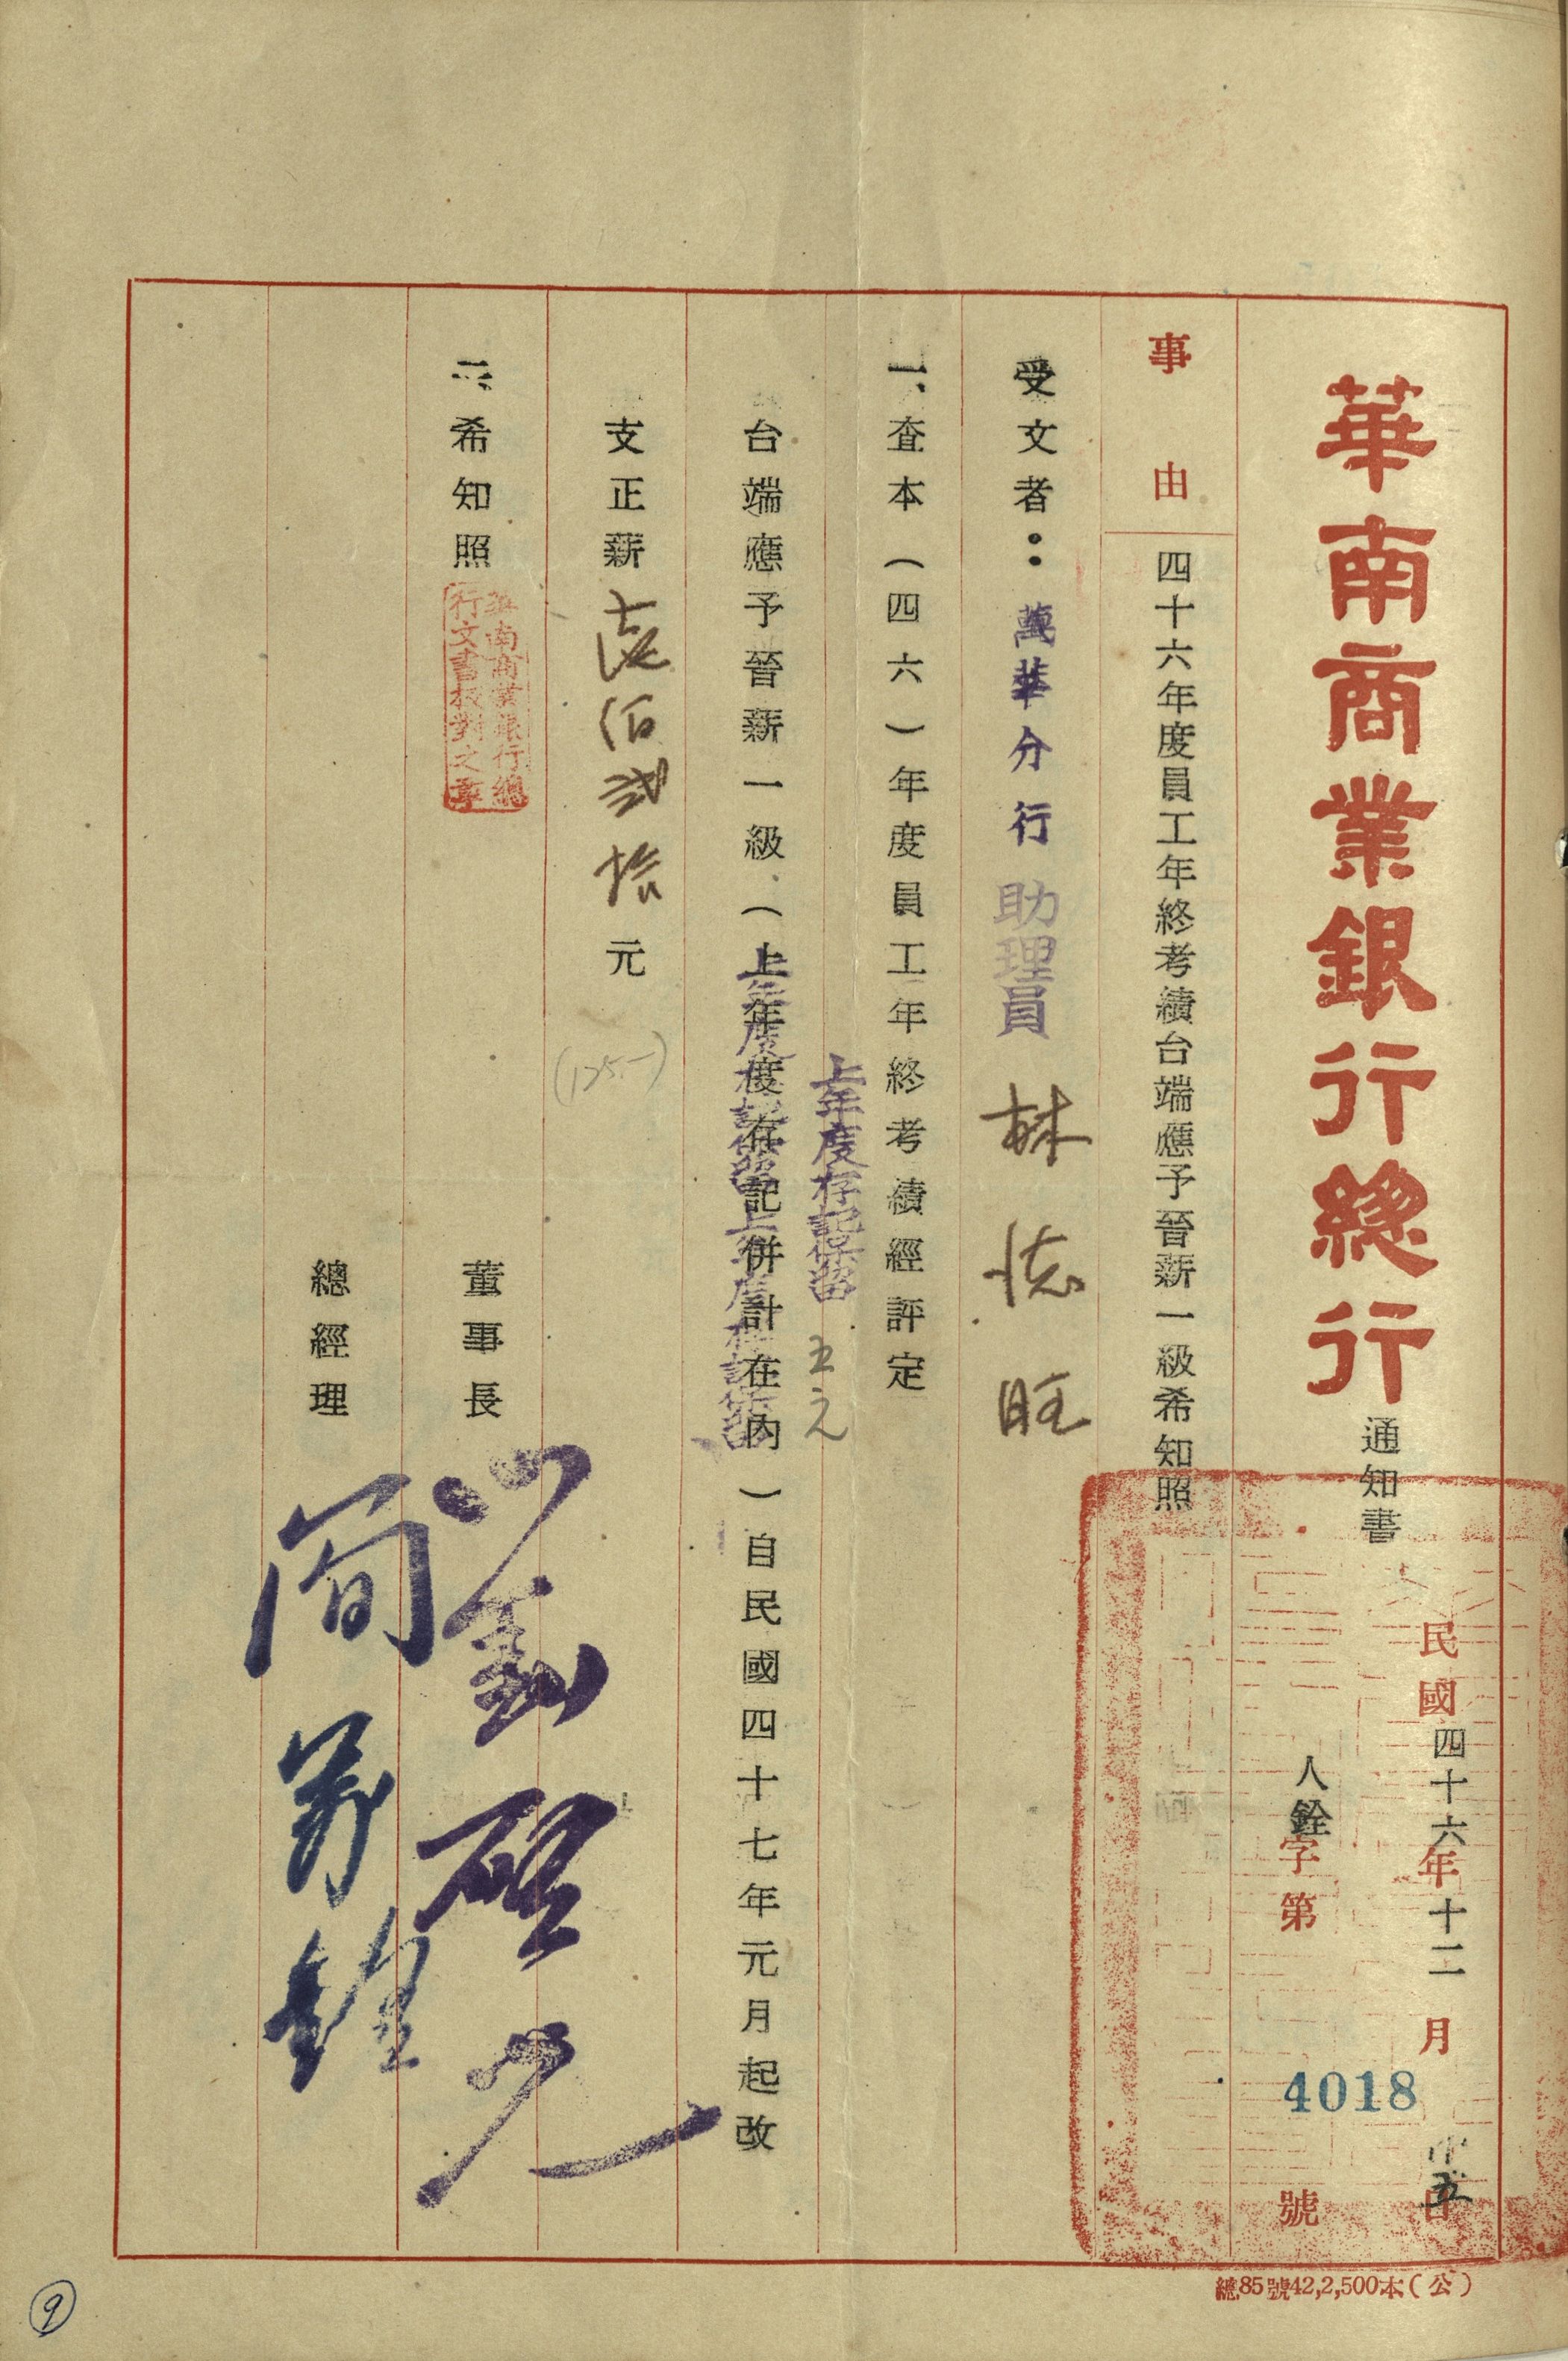 華南商業銀行總行通知書
民國四十六年十二月廿五日
人銓字第4018號
事由
四十六年度員工年終考績台端應予晉薪一級希知照
受文者：萬華分行助理員林德旺
一、查本（四六）年度員工年終考績經評定
上年度存記保留五元
台端應予晉薪一級（上年度存記併計在內）自民國四十七年元月起改
支正薪壹佰貳拾元
(125.-)
二、希知照
華南商業銀行總
行文書校對之章
董事長劉啓光
總經理
總85號42,2,500本(公)
9